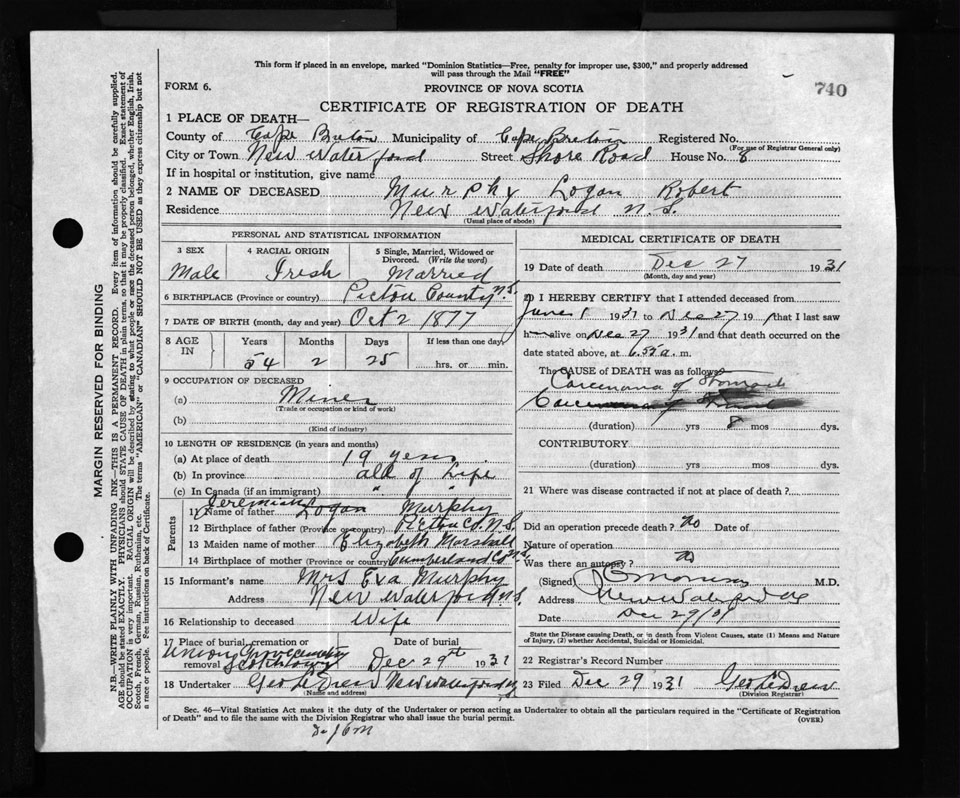 This form if placed in an envelope, marked "Dominion Statistics—Free, penalty for improper use, $300," and properly addressed
will pass through the Mail "FREE"
FORM 6.
PROVINCE OF NOVA SCOTIA
740
CERTIFICATE OF REGISTRATION OF DEATH
1 PLACE OF DEATH—
County of Cape Breton Municipality of Cape Breton Registered No.
(For use of Registrar General only)
City or Town New Waterford Street Shore Road House No. 8
If in hospital or institution, give name
2 NAME OF DECEASED Murphy Logan Robert
Residence New Waterford N.S.
(Usual place of abode)
PERSONAL AND STATISTICAL INFORMATION
3 SEX 4 RACIAL ORIGIN 5 Single, Married, Widowed or Divorced. (Write the word)
Male Irish Married
6 BIRTHPLACE (Province or country) Pictou County N.S.
7 DATE OF BIRTH (month, day and year) Oct 2 1877
8 AGE IN Years Months Days If less than one day,
54 2 25 hrs. or min.
9 OCCUPATION OF DECEASED
(a) Miner
(Trade or occupation or kind of work)
(b)
(Kind of industry)
10 LENGTH OF RESIDENCE (in years and months)
(a) At place of death 19 years
(b) In province all of Life
(c) In Canada (if an immigrant) " " "
Parents
11 Name of father Jeremiah Logan Murphy
12 Birthplace of father (Province or country) Pictou Co. N.S.
13 Maiden name of mother Elizabeth Marshall
14 Birthplace of mother (Province or country) Cumberland Co N.S.
15 Informant's name Mrs Eva Murphy
Address New Waterford N.S.
16 Relationship to deceased Wife
17 Place of burial, cremation or removal Date of burial
Union Grove cemetery
Scotchtown Dec 29th 1931
18 Undertaker Geo LeDrew New Waterford
Name and address
MEDICAL CERTIFICATE OF DEATH
19 Date of death Dec 27 1931
(Month, day and year)
20 I HEREBY CERTIFY that I attended deceased from
June 1 1931 to Dec 27 1931 that I last saw
him alive on Dec 27 1931 and that death occurred on the
date stated above, at 6.55 a. m.
The CAUSE of DEATH was as follows:
Carcinoma of Stomach
(duration) yrs 8 mos dys.
CONTRIBUTORY
(duration) yrs mos dys.
21 Where was disease contracted if not at place of death?
Did an operation precede death? No Date of
Nature of operation
Was there an autopsy? No
(Signed) M.D.
Address New Waterford
Date Dec 29/31
State the Disease causing Death, or in death from Violent Causes, state (1) Means and Nature
of Injury, (2) whether Accidental, Suicidal or Homicidal.
22 Registrar's Record Number
23 Filed Dec 29 1931 Geo LeDrew
(Division Registrar)
Sec. 46—Vital Statistics Act makes it the duty of the Undertaker or person acting as Undertaker to obtain all the particulars required in the "Certificate of Registration
of Death" and to file the same with the Division Registrar who shall issue the burial permit.
(OVER)
MARGIN RESERVED FOR BINDING
N.B.—WRITE PLAINLY WITH UNFADING INK—THIS IS A PERMANENT RECORD. Every item of information should be carefully supplied.
AGE should be stated EXACTLY. PHYSICIANS should STATE CAUSE OF DEATH in plain terms, so that it may be properly classified. Exact statement of
OCCUPATION is very important. RACIAL ORIGIN will be described by stating to what people or race the deceased person belonged, whether English, Irish,
Scotch, French, German, Russian, Ruthenian, etc. The terms "AMERICAN" or "CANADIAN" SHOULD NOT BE USED as they express citizenship but not
a race or people. See instructions on back of Certificate.